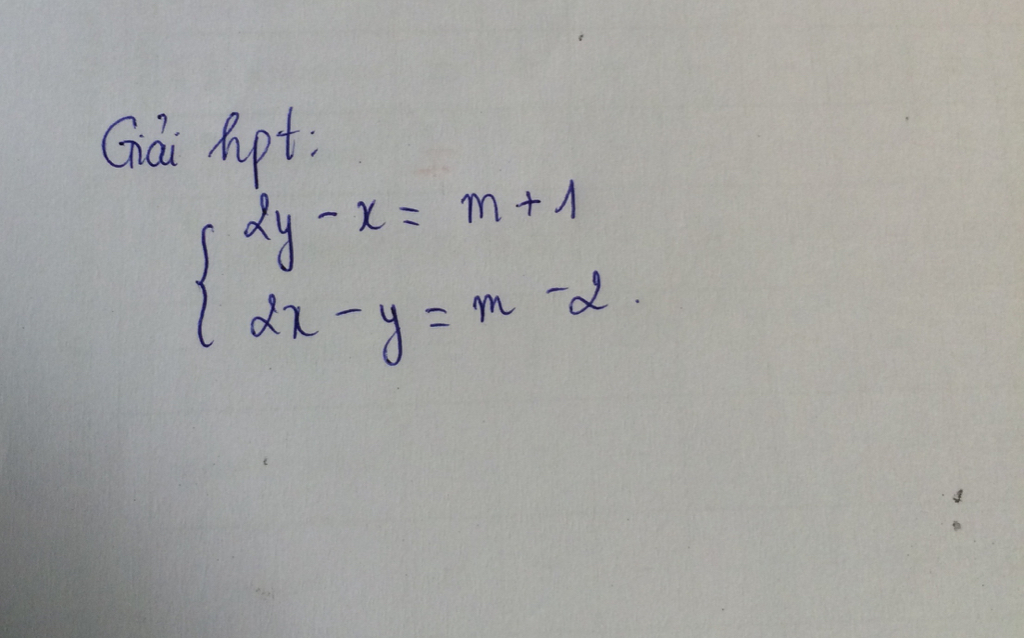 Giải hpt:
{ 2y - x = m + 1
2x - y = m - 2.